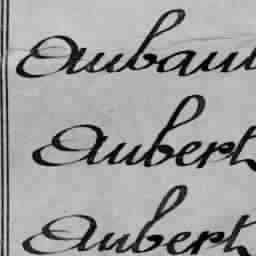 Aubaul
Aubert
Aubert